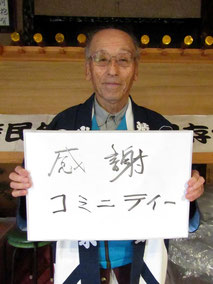 感謝
コミニティー
民
存